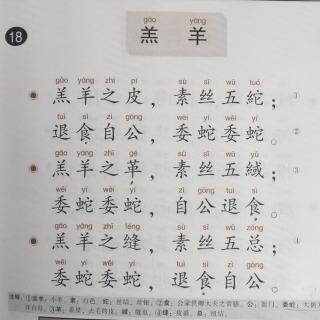 gāo yáng
18 羔羊
gāo yáng zhī pí sù sī wǔ tuó
羔羊之皮，素丝五紽；①
tuì sì zì gōng wēi yí wēi yí
退食自公，委蛇委蛇。②
gāo yáng zhī gé sù sī wǔ yù
羔羊之革，素丝五緎；③
wēi yí wēi yí zì gōng tuì sì
委蛇委蛇，自公退食。
gāo yáng zhī féng sù sī wǔ zǒng
羔羊之缝，素丝五总；④
wēi yí wēi yí tuì sì zì gōng
委蛇委蛇，退食自公。
注释：①羔羊：小羊。素：白色。紽：丝结、丝钮。②食：公家供卿大夫之常膳。公：衙门。委蛇：
洋自得。③革：